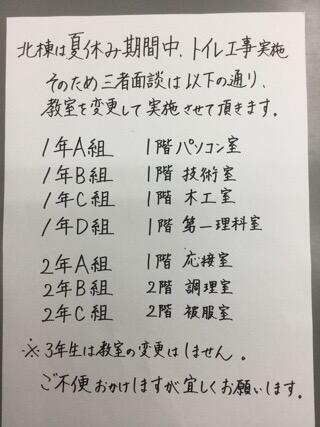 北棟は夏休み期間中、トイレ工事実施
そのため三者面談は以下の通り、
教室を変更して実施させて頂きます。
1年A組 1階 パソコン室
1年B組 1階 技術室
1年C組 1階 木工室
1年D組 1階 第一理科室
2年A組 1階 応接室
2年B組 2階 調理室
2年C組 2階 被服室
※3年生は教室の変更はしません。
ご不便おかけしますが宜しくお願いします。